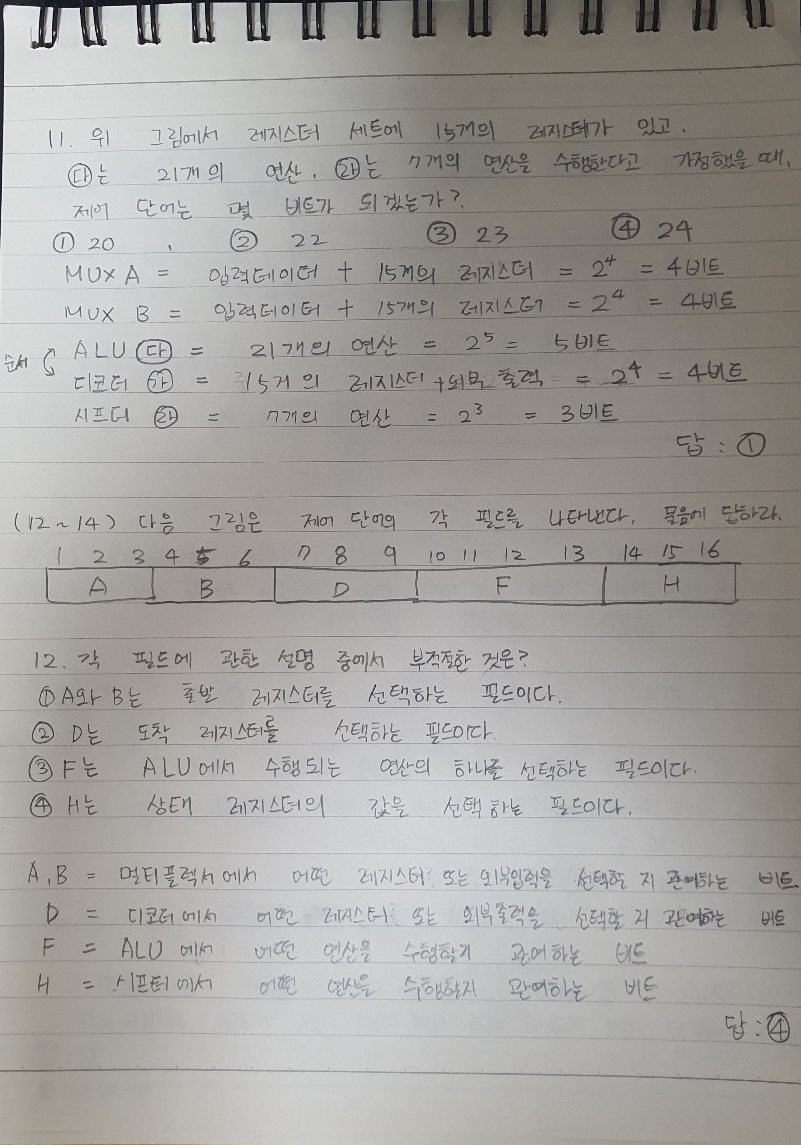 11. 위 그림에서 레지스터 세트에 15개의 레지스터가 있고,
㉰는 21개의 연산, ㉱는 7개의 연산을 수행한다고 가정했을 때,
제어 단어는 몇 비트가 되겠는가?
① 20 ② 22 ③ 23 ④ 24
MUX A = 입력데이터 + 15개의 레지스터 = 2⁴ = 4비트
MUX B = 입력데이터 + 15개의 레지스터 = 2⁴ = 4비트
순서 ALU ㉰ = 21개의 연산 = 2⁵ = 5비트
디코더 ㉮ = 15개의 레지스터 + 외부 출력 = 2⁴ = 4비트
시프터 ㉱ = 7개의 연산 = 2³ = 3비트
답 : ①
(12~14) 다음 그림은 제어 단어의 각 필드를 나타낸다. 물음에 답하라.
1 2 3 4 5 6 7 8 9 10 11 12 13 14 15 16
A B D F H
12. 각 필드에 관한 설명 중에서 부적절한 것은?
① A와 B는 출발 레지스터를 선택하는 필드이다.
② D는 도착 레지스터를 선택하는 필드이다.
③ F는 ALU에서 수행되는 연산의 하나를 선택하는 필드이다.
④ H는 상태 레지스터의 값을 선택하는 필드이다.
A, B = 멀티플렉서에서 어떤 레지스터 또는 외부입력을 선택할 지 관여하는 비트
D = 디코더에서 어떤 레지스터 또는 외부출력을 선택할 지 관여하는 비트
F = ALU에서 어떤 연산을 수행할지 관여하는 비트
H = 시프터에서 어떤 연산을 수행할지 관여하는 비트
답 : ④